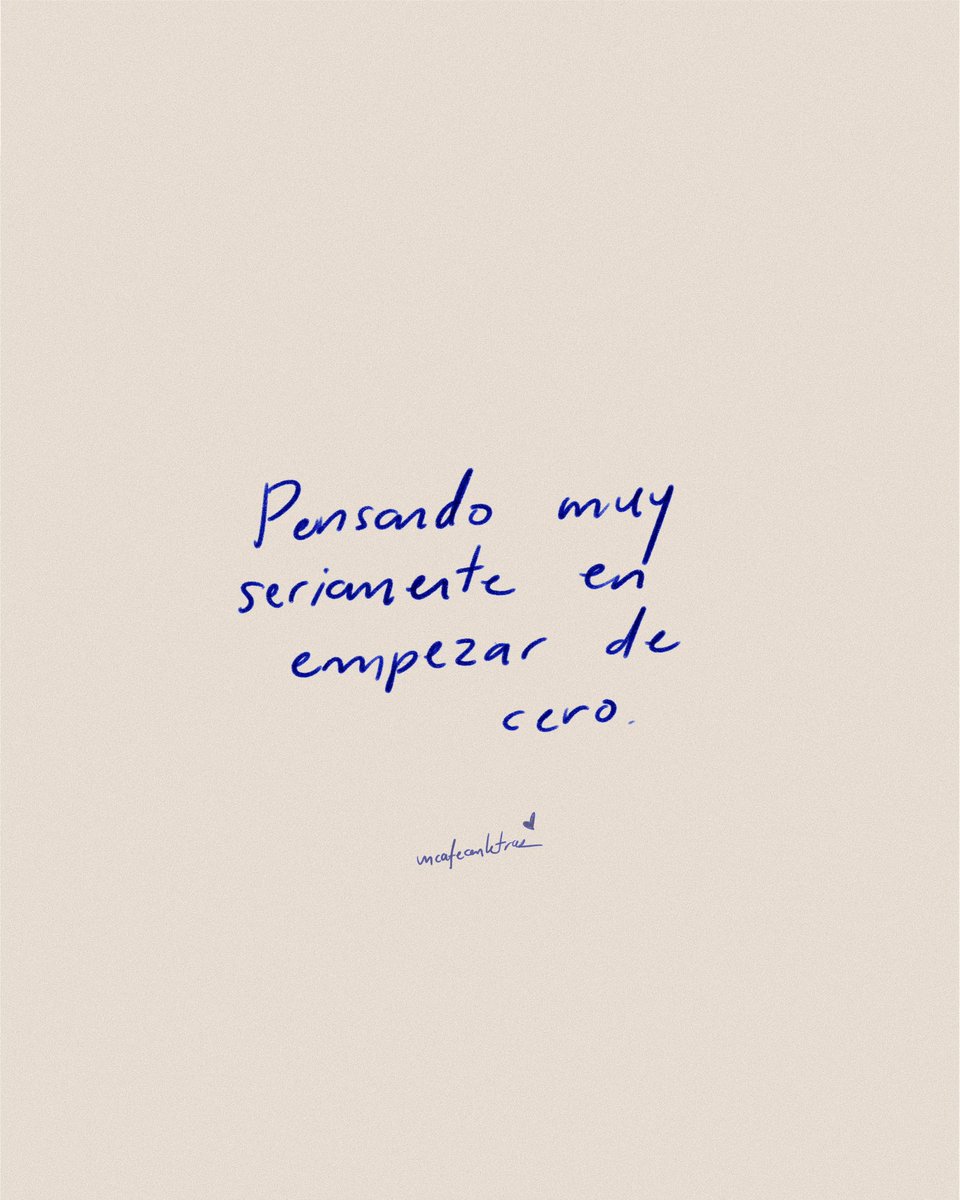 Pensando muy
seriamente en
empezar de
cero.
uncafeconletras